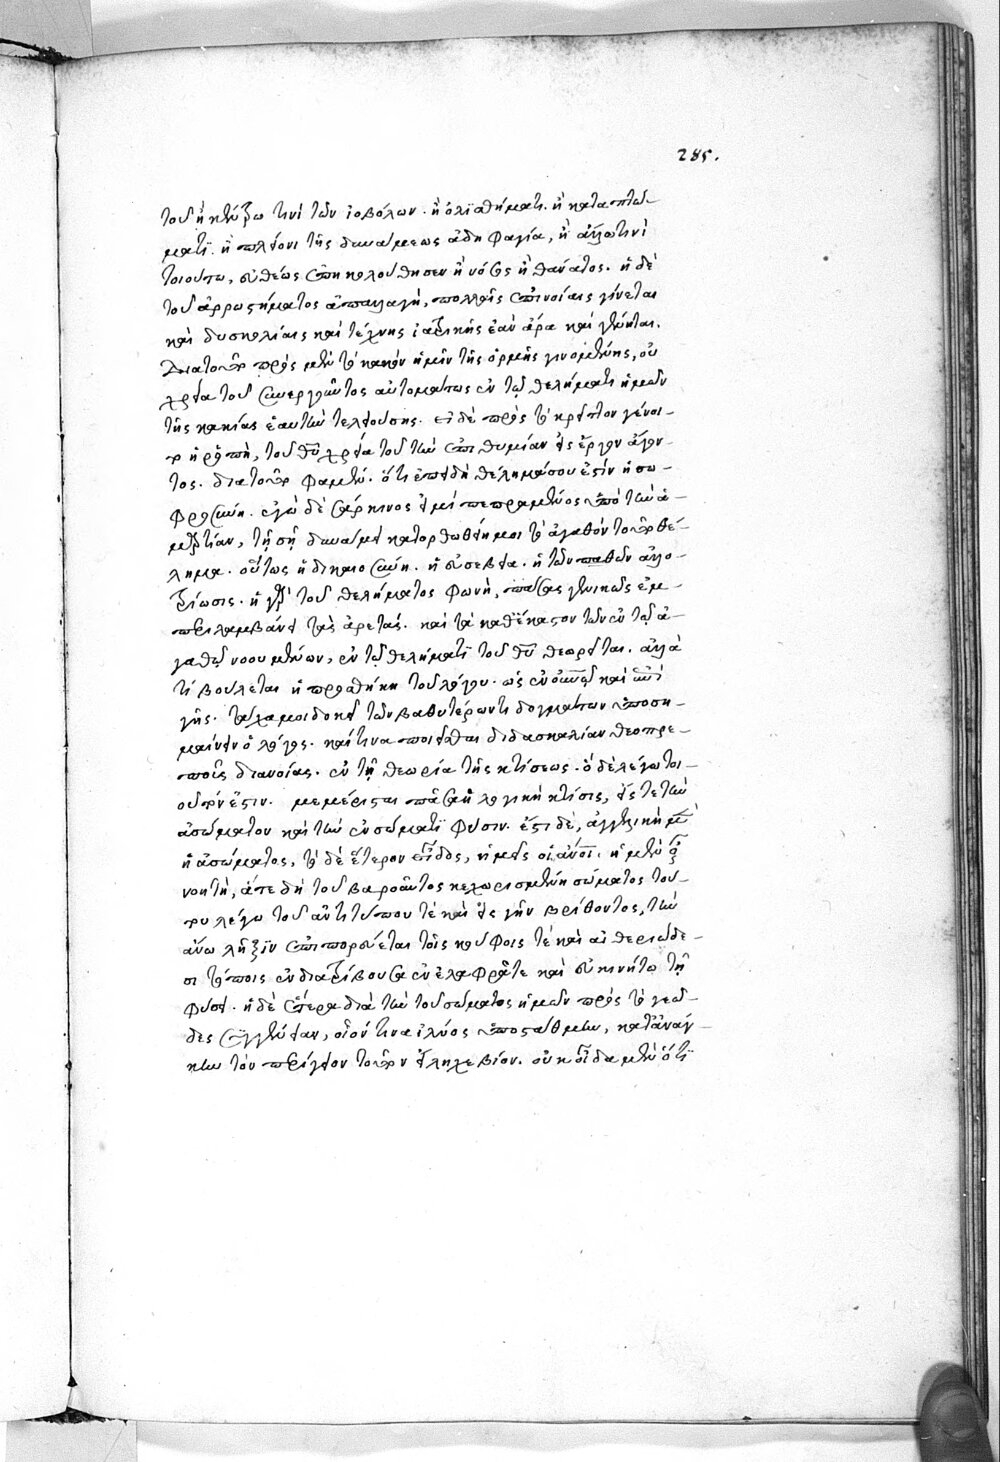 285.
τοῦ ἢ κεντρῳ τινὶ τῶν ἰοβόλων. ἢ ὀλισθήματι. ἢ καταπτώ-
ματι. ἢ πλείονι τῆς δυνάμεως ἀδηφαγία, ἢ ἄλλω τινὶ
τοιούτω, εὐθέως ἐπηκολούθησεν ἡ νόσος ἢ θάνατος. ἡ δὲ
τοῦ ἀρρωστήματος ἀπαλλαγὴ, πολλαῖς ἐπινοίαις γίνεται
καὶ δυσκολίαις καὶ τέχνης ἰατρικῆς ἐὰν ἄρα καὶ γένηται.
Διατοῦτο πρὸς μὲν τὸ κακὸν ἡμῖν τῆς ὁρμῆς γινομένης, οὐ
χρεία τοῦ συνεργοῦντος αὐτομάτως ἐν τῷ θελήματι ἡμῶν
τῆς κακίας ἑαυτὴν τελειούσης. εἰ δὲ πρὸς τὸ κρεῖττον γένοι-
το ἡ ῥοπὴ, τοῦ θῦ χρεία τοῦ τὴν ἐπιθυμίαν εἰς ἔργον ἄγον-
τος. διατοῦτο φαμέν. ὅτι ἐπειδὴ θέλημα σου ἐστὶν ἡ σω-
φροσύνη. ἐγὼ δὲ σάρκινος εἰμὶ πεπραμένος ὑπὸ τὴν ἁ-
μαρτίαν, τῇ σῇ δυνάμει κατορθωθείη μοι τὸ ἀγαθὸν τοῦτο θέ-
λημα. οὕτως ἡ δικαιοσύνη. ἡ εὐσέβεια. ἡ τῶν παθῶν ἀλλο-
τρίωσις. ἡ γὰρ τοῦ θελήματος φωνὴ, πάσας γενικῶς ἐμ-
περιλαμβάνει τὰς ἀρετάς. καὶ τὰ καθέκαστον τῶν ἐν τῷ ἀ-
γαθῷ νοουμένων, ἐν τῷ θελήματι τοῦ θῦ θεωρεῖται. ἀλλὰ
τί βούλεται ἡ προσθήκη τοῦ λόγου. ὡς ἐν οὐνῷ καὶ ἐπὶ
γῆς. τάχα μοι δοκεῖ τῶν βαθυτέρων τι δογμάτων ὑποση-
μαίνειν ὁ λόγος. καί τινα ποιεῖσθαι διδασκαλίαν θεοπρε-
ποῦς διανοίας. ἐν τῇ θεωρία τῆς κτίσεως. ὃ δὲ λέγω τοι-
οῦτόν ἐστιν. μεμέρισται πᾶσα ἡ λογικὴ κτίσις, εἴς τε τὴν
ἀσώματον καὶ τὴν ἐνσώματι φύσιν. ἔστι δὲ, ἀγγελικὴ μὲν
ἡ ἀσώματος, τὸ δὲ ἕτερον εἶδος, ἡμεῖς οἱ ἄνοι. ἡ μὲν οὖν
νοητὴ, ἅτε δὴ τοῦ βαροῦντος κεχωρισμένη σώματος τού-
του λέγω τοῦ ἀντιτύπου τὲ καὶ εἰς γῆν βρίθοντος, τὴν
ἄνω λῆξιν ἐπιπορεύεται τοῖς κούφοις τὲ καὶ αἰθεριώδε-
σι τόποις ἐνδιατρίβουσα ἐν ἐλαφρᾷ τε καὶ εὐκινήτω τῇ
φύσει. ἡ δὲ ἑτέρα διὰ τὴν τοῦ σώματος ἡμῶν πρὸς τὸ γεῶ-
δες συγγένειαν, οἷόν τινα ἰλύος ὑποστάθμην, κατανάγ-
κην τὸν περίγειον τοῦτον εἴληχε βίον. οὐκ οἶδα μὲν ὅτι